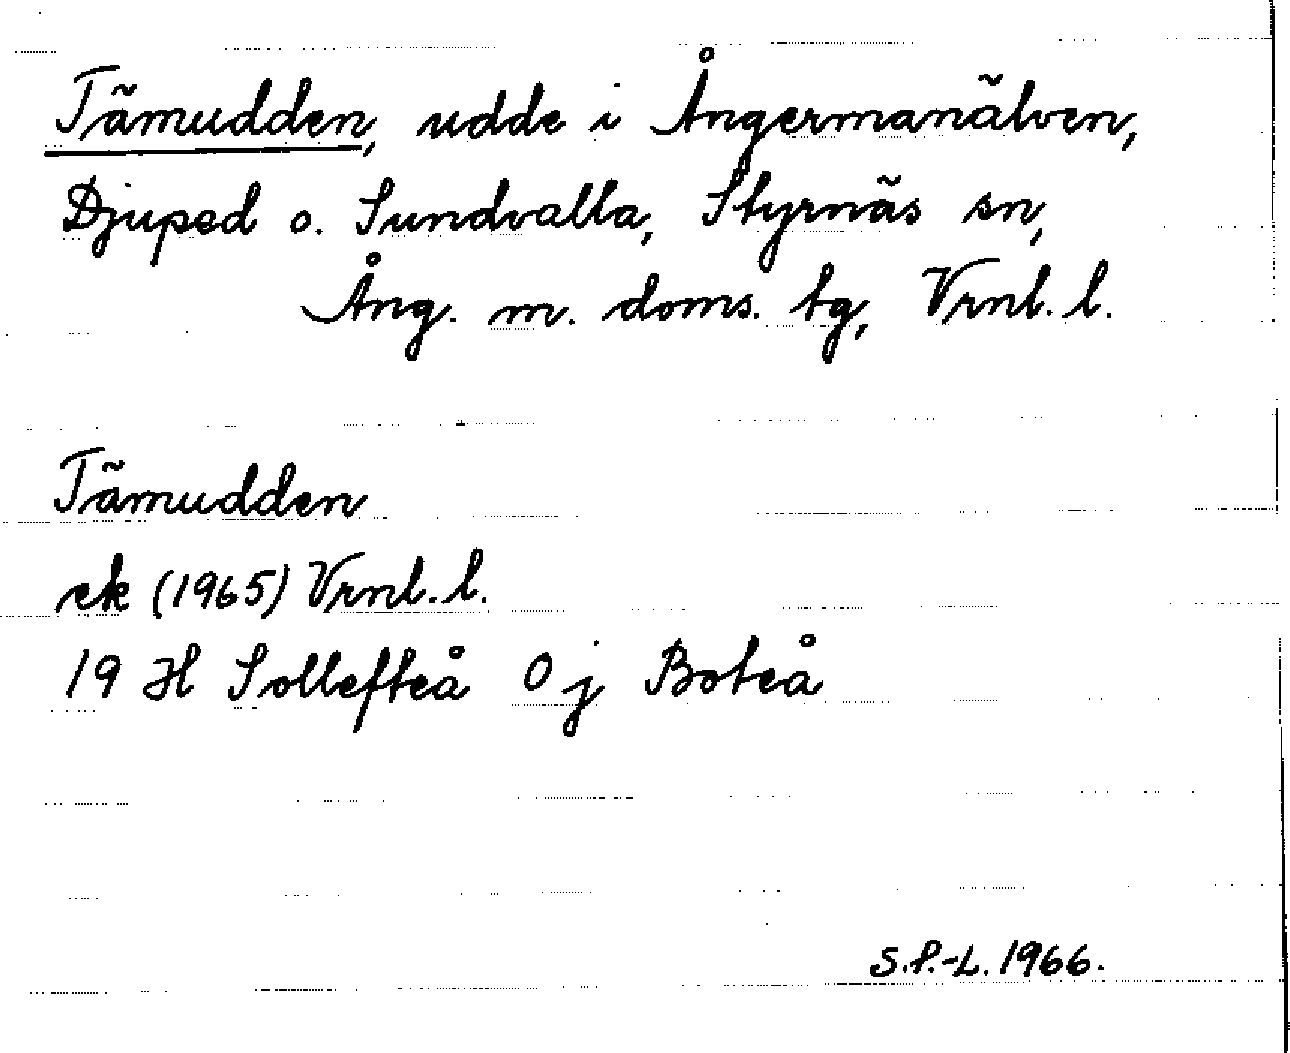 Tämudden, udde i Ångermanälven,
Djuped o. Sundvalla, Styrnäs sn,
Ång. m. doms. tg, Vrnl. l.
Tämudden
ek (1965) Vrnl. l.
19 H Sollefteå 0 j Boteå
S.P.-L. 1966.